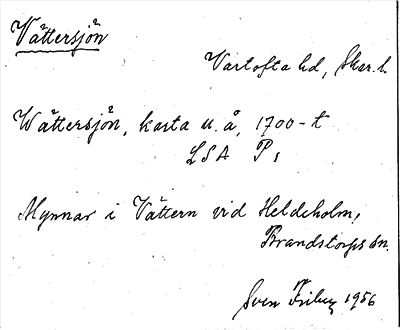 Vättersjön
Vartofta hd, Skar. l.
Wättersjön, karta u. å, 1700-t
LSA P1
Mynnar i Vättern vid Heldeholm,
Brandstorps sn.
Sven 1956